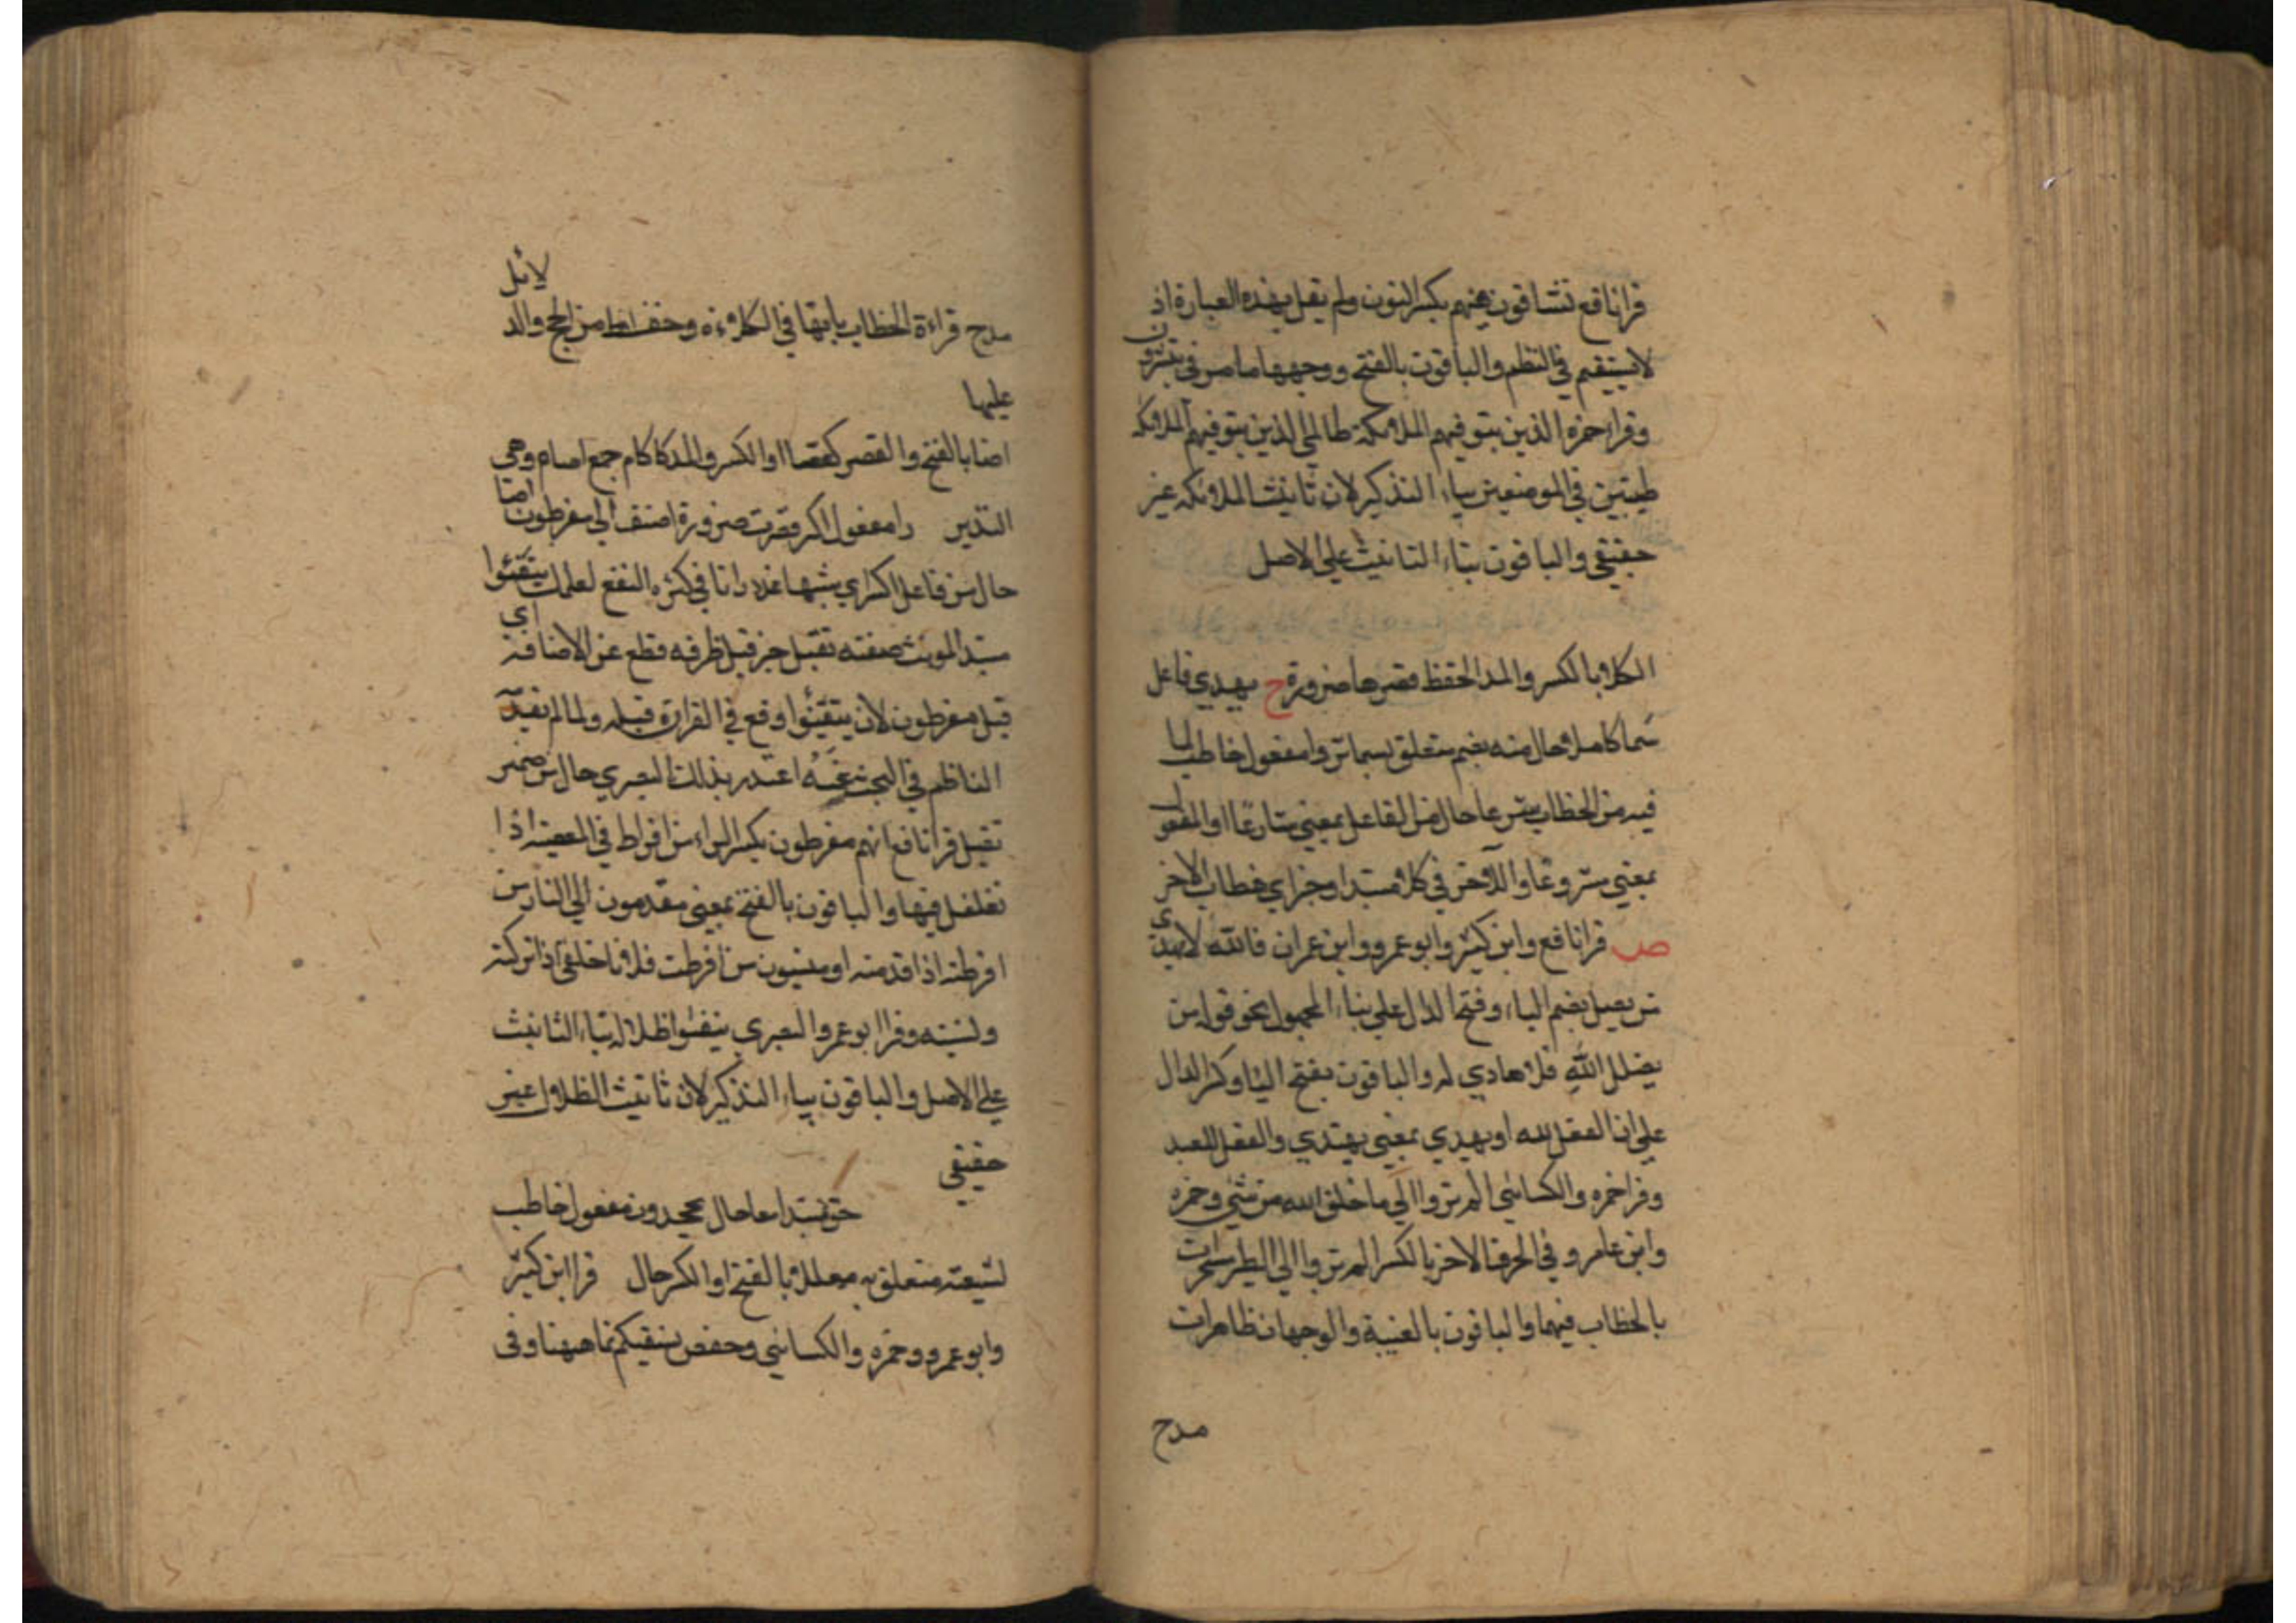 قرا نافع تشاقون فيهم بكسر النون ولم يقل بهذه العبارة اذ
لا يستقيم في النظم والباقون بالفتح ووجهها ما مر في تبشرون
وقرا حمزه الذين يتوفيهم الملائكة ظالمي الذين يتوفيهم الملائكه
طيبين في الموضعين بياء التذكير لان تانيث الملائكه غير
حقيقي والباقون بتاء التانيث علي الاصل
الكلا بالكسر والمد الحفظ قصرها ضرورة ح يهدي فاعل
سما كاملا حال منه بضم متعلق بسما تروا مفعول خاطب لما
فيه من الخطاب شرعا حال من الفاعل بمعني شارعا او المفعول
بمعني مشروعا والآخر في كلا مبتدا وخبر اي خطاب الاخر
ص قرا نافع وابن كثير وابو عمرو وابن عمران فالله لا يهدي
من يضل بضم الياء وفتح الدال علي بناء المجهول نحو قوله من
يضلل الله فلا هادي له والباقون بفتح اليا وكسر الدال
علي ان الفعل لله او يهدي بمعني يهتدي والفعل للعبد
وقرا حمزه والكسائي الم تروا الي ما خلق الله من شئ وحمزه
وابن عامر وفي الحرف الاخر بالكسر الم تروا الي الطير مسخرات
بالخطاب فيهما والباقون بالغيبة والوجهان ظاهرات
مدح
مدح قراءة الخطاب بانها في الكلاءة وحفظ من الحج والدلائل
عليها
اضا بالفتح والقصر او الكسر والمد كاكام جمع وهي
الغدير را مفعول اكسر قصرت ضرورة اضف الي مفرطون اضا
حال من فاعل اكسر اي مشبها غدرانا في كثره النفع لعلمك يتفيئوا
مبتدا المونث صفته تقبل خبر قبل ظرفه قطع عن الاضافة اي
قبل مفرطون لان يتفيئوا وقع في القران قبله ولما لم يفد
الناظم في البحث عنه اعتذر بذلك البصري حال من ضمير
تقبل قرا نافع انهم مفرطون بكسر الراء من افرط في المعصية اذا
تغلغل فيها والباقون بالفتح بمعني مقدمون الي النار من
افرطته اذا قدمته او منسيون من افرطت فلانا خلفي اذا تركته
ونسيته وقرا ابو عمرو البصري يتفيئوا ظلاله بتاء التانيث
علي الاصل والباقون بياء التذكير لان تانيث الظلال غير
حقيقي
حق مبتدا معا حال يجحدون مفعول خاطب
لشيعته متعلق به معللا بالفتح او الكسر حال قرا ابن كثير
وابو عمرو وحمزه والكسائي وحفص نسقيكم مما هيهنا وفي